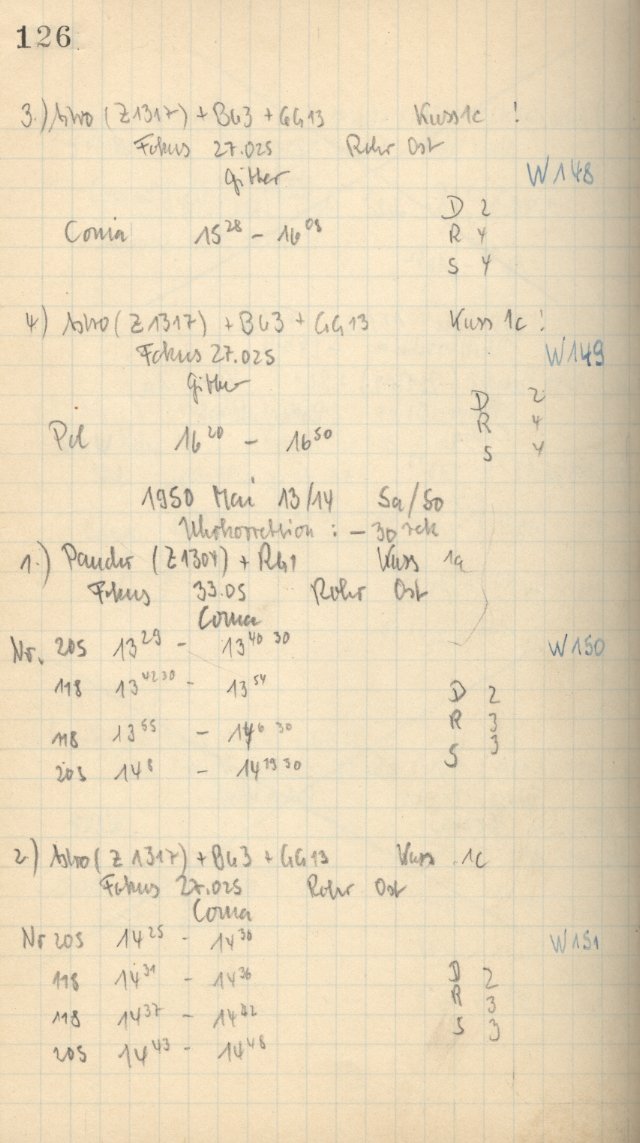 126
3.) Astro (Z1317) + BG3 + GG13 Kuss 1c !
Fokus 27.025 Rohr Ost
Gitter W148
D 2
Coma 15 28 - 16 08 R 4
S 4
4) Astro (Z1317) + BG3 + GG13 Kuss 1c !
Fokus 27.025 W149
Gitter
D 2
Pol 16 20 - 16 50 R 4
S 4
1950 Mai 13/14 Sa/So
Uhrkorrektion : - 30 sek
1.) Pander (Z1304) + RG1 Kuss 1a
Fokus 33.05 Rohr Ost
Coma
Nr. 205 13 29 - 13 40 30 W150
118 13 42 30 - 13 54 D 2
118 13 55 - 14 6 30 R 3
205 14 8 - 14 19 30 S 3
2) Astro (Z1317) + BG3 + GG13 Kuss 1c
Fokus 27.025 Rohr Ost
Coma
Nr 205 14 25 - 14 30 W151
118 14 31 - 14 36 D 2
118 14 37 - 14 42 R 3
205 14 43 - 14 48 S 3